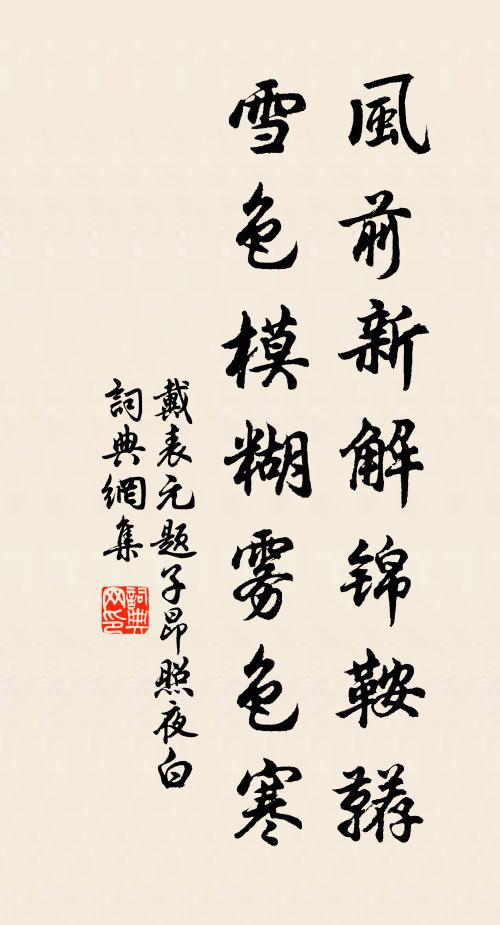 風前新解锦鞍韉
雪色模糊雾色寒
戴表元题子昂照夜白
詞典網集
詞典
网印